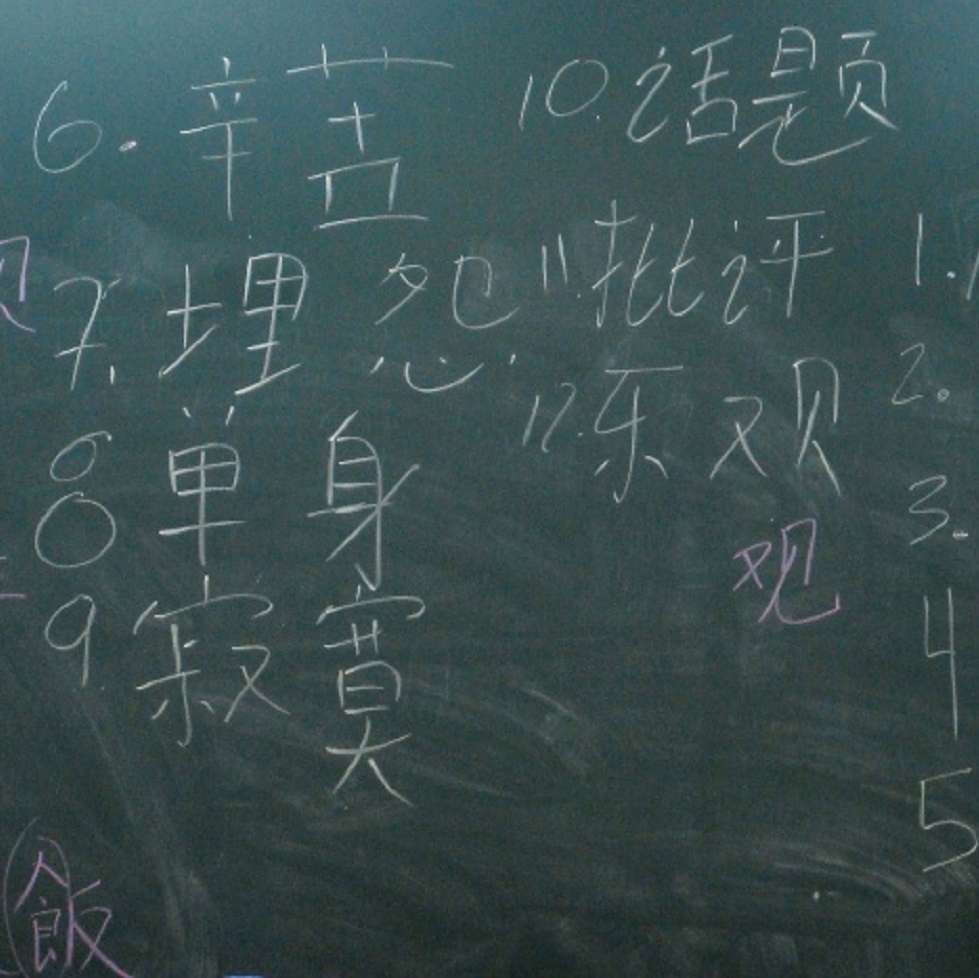 6. 辛苦
7. 埋怨
8 单身
9 寂寞
10. 话题
11. 批评
12. 乐观
观
飯
1.
2.
3.
4
5